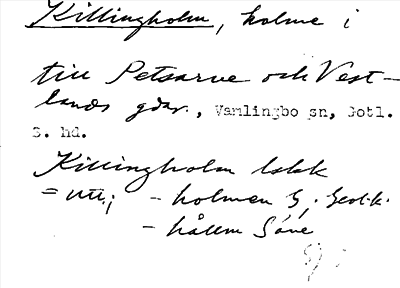 Killingholm, holme i
till Petsarve och Vest-
lands gdar., Vamlingbo sn, Gotl.
S. hd.
Killingholm lskk
= utt.; - holmen G, Geol.k.
- hållm Säve